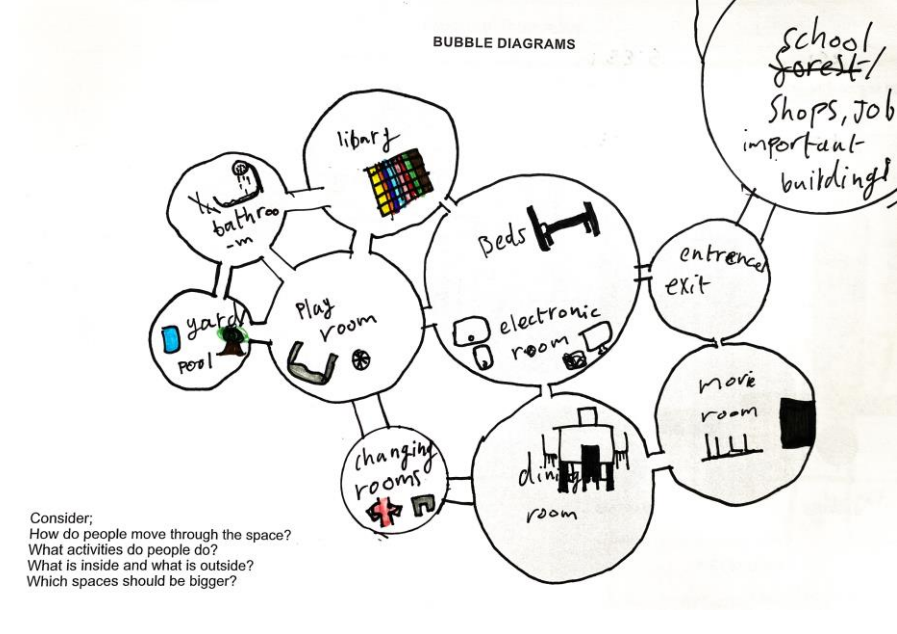 BUBBLE DIAGRAMS
school
forest/
Shops, Job
important
buildings
librarf
bathroo
-m
Beds
entrences
exit
play
room
yard/
pool
electronic
room
movie
room
changing
rooms
dining
room
Consider;
How do people move through the space?
What activities do people do?
What is inside and what is outside?
Which spaces should be bigger?